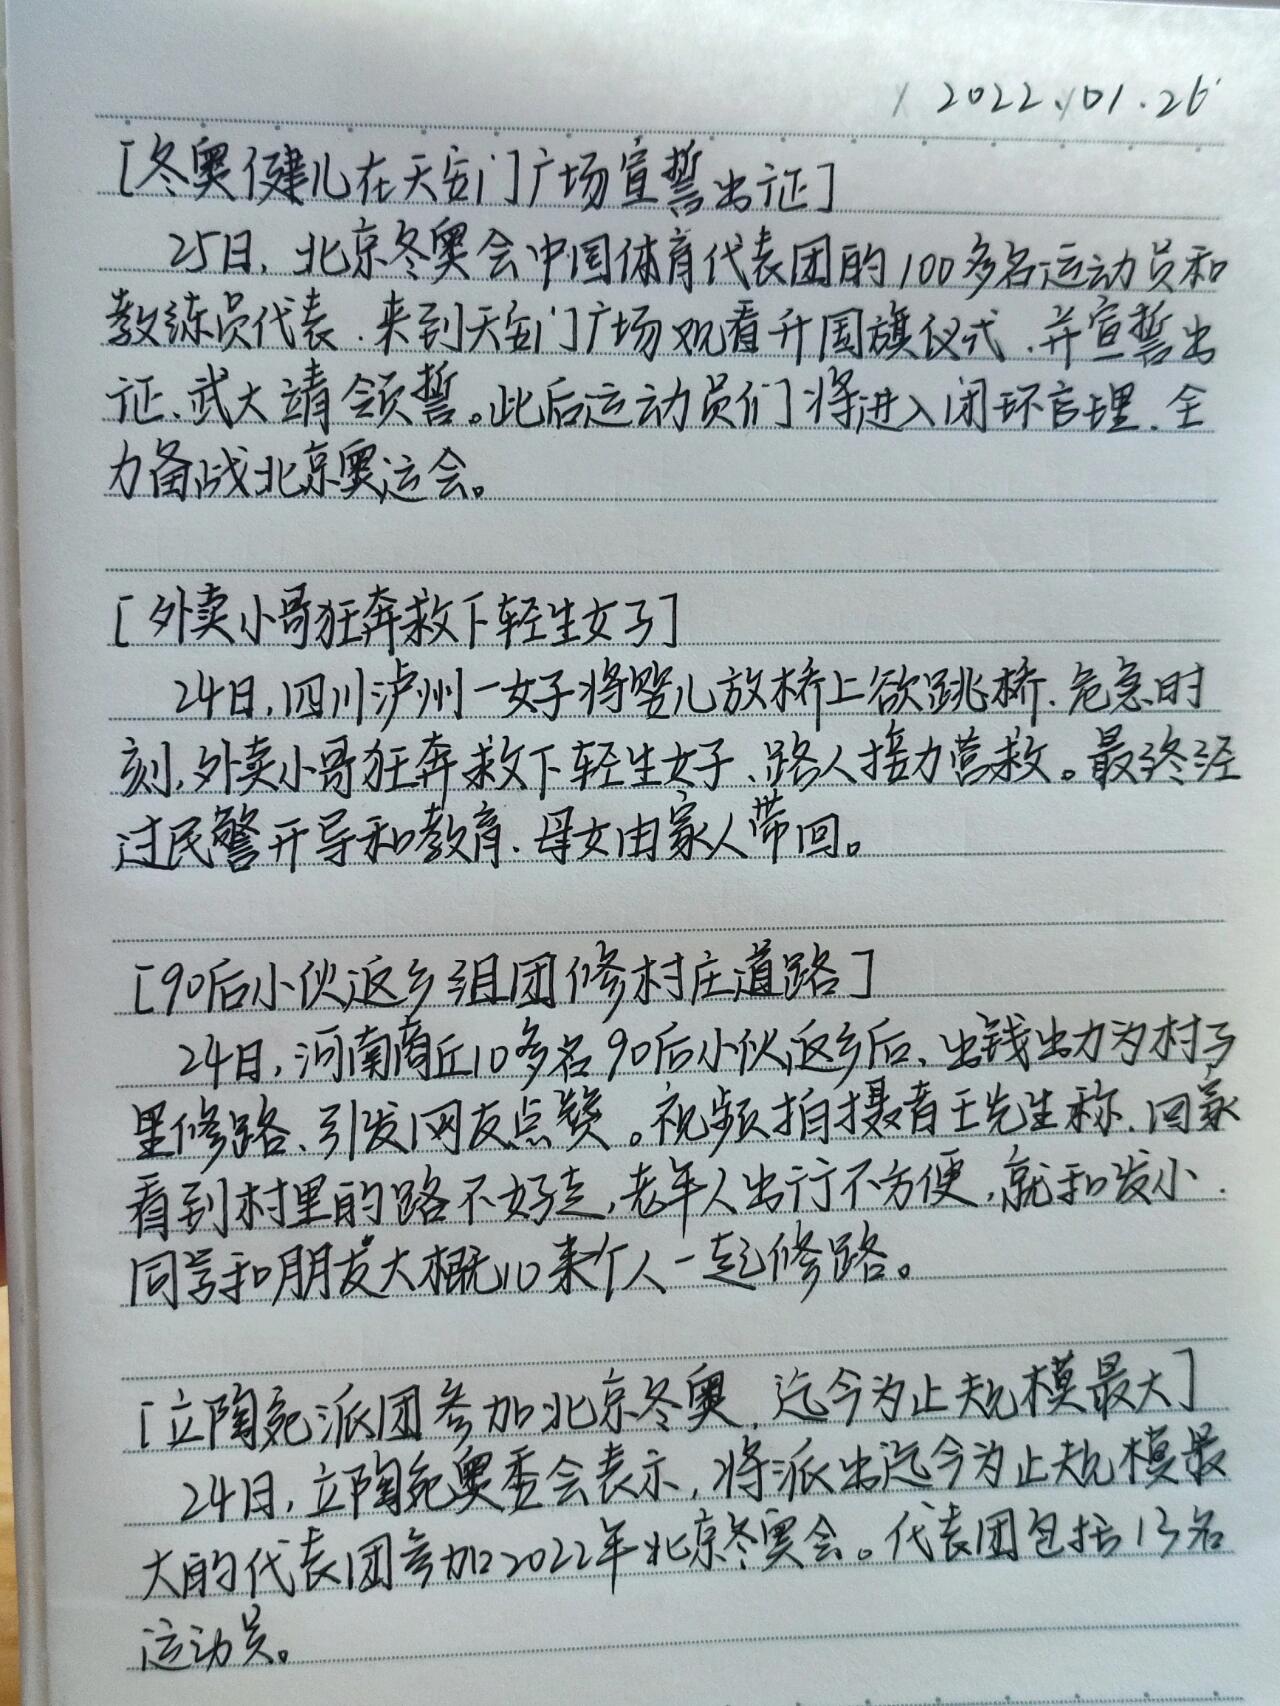 2022.01.26
[冬奥健儿在天安门广场宣誓出证]
25日,北京冬奥会中国体育代表团的100多名运动员和
教练员代表.来到天安门广场观看升国旗仪式.并宣誓出
证、武大靖领誓。此后运动员们将进入闭环官理.全
力备战北京奥运会。
[外卖小哥狂奔救下轻生女子]
24日,四川泸州一女子将婴儿放桥上欲跳桥.危急时
刻,外卖小哥狂奔救下轻生女子、路人接力营救。最终经
过民警开导和教育.母女由家人带回。
[90后小伙返乡组团修村庄道路]
24日,河南商丘10多名90后小伙返乡后、出钱出力为村子
里修路、引发网友点赞。视频拍摄者王先生称.回家
看到村里的路不好走,老年人出行不方便,就和发小.
同学和朋友大概10来个人一起修路。
[立陶宛派团参加北京冬奥,迄今为止规模最大]
24日,立陶宛奥委会表示,将派出迄今为止规模最
大的代表团参加2022年北京冬奥会。代表团包括13名
运动员。